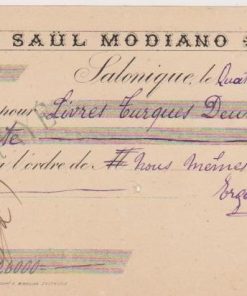 SAÜL MODIANO
Salonique, le Quat
pour Livres Turques Deux
te
à l'ordre de # nous mêmes
26000